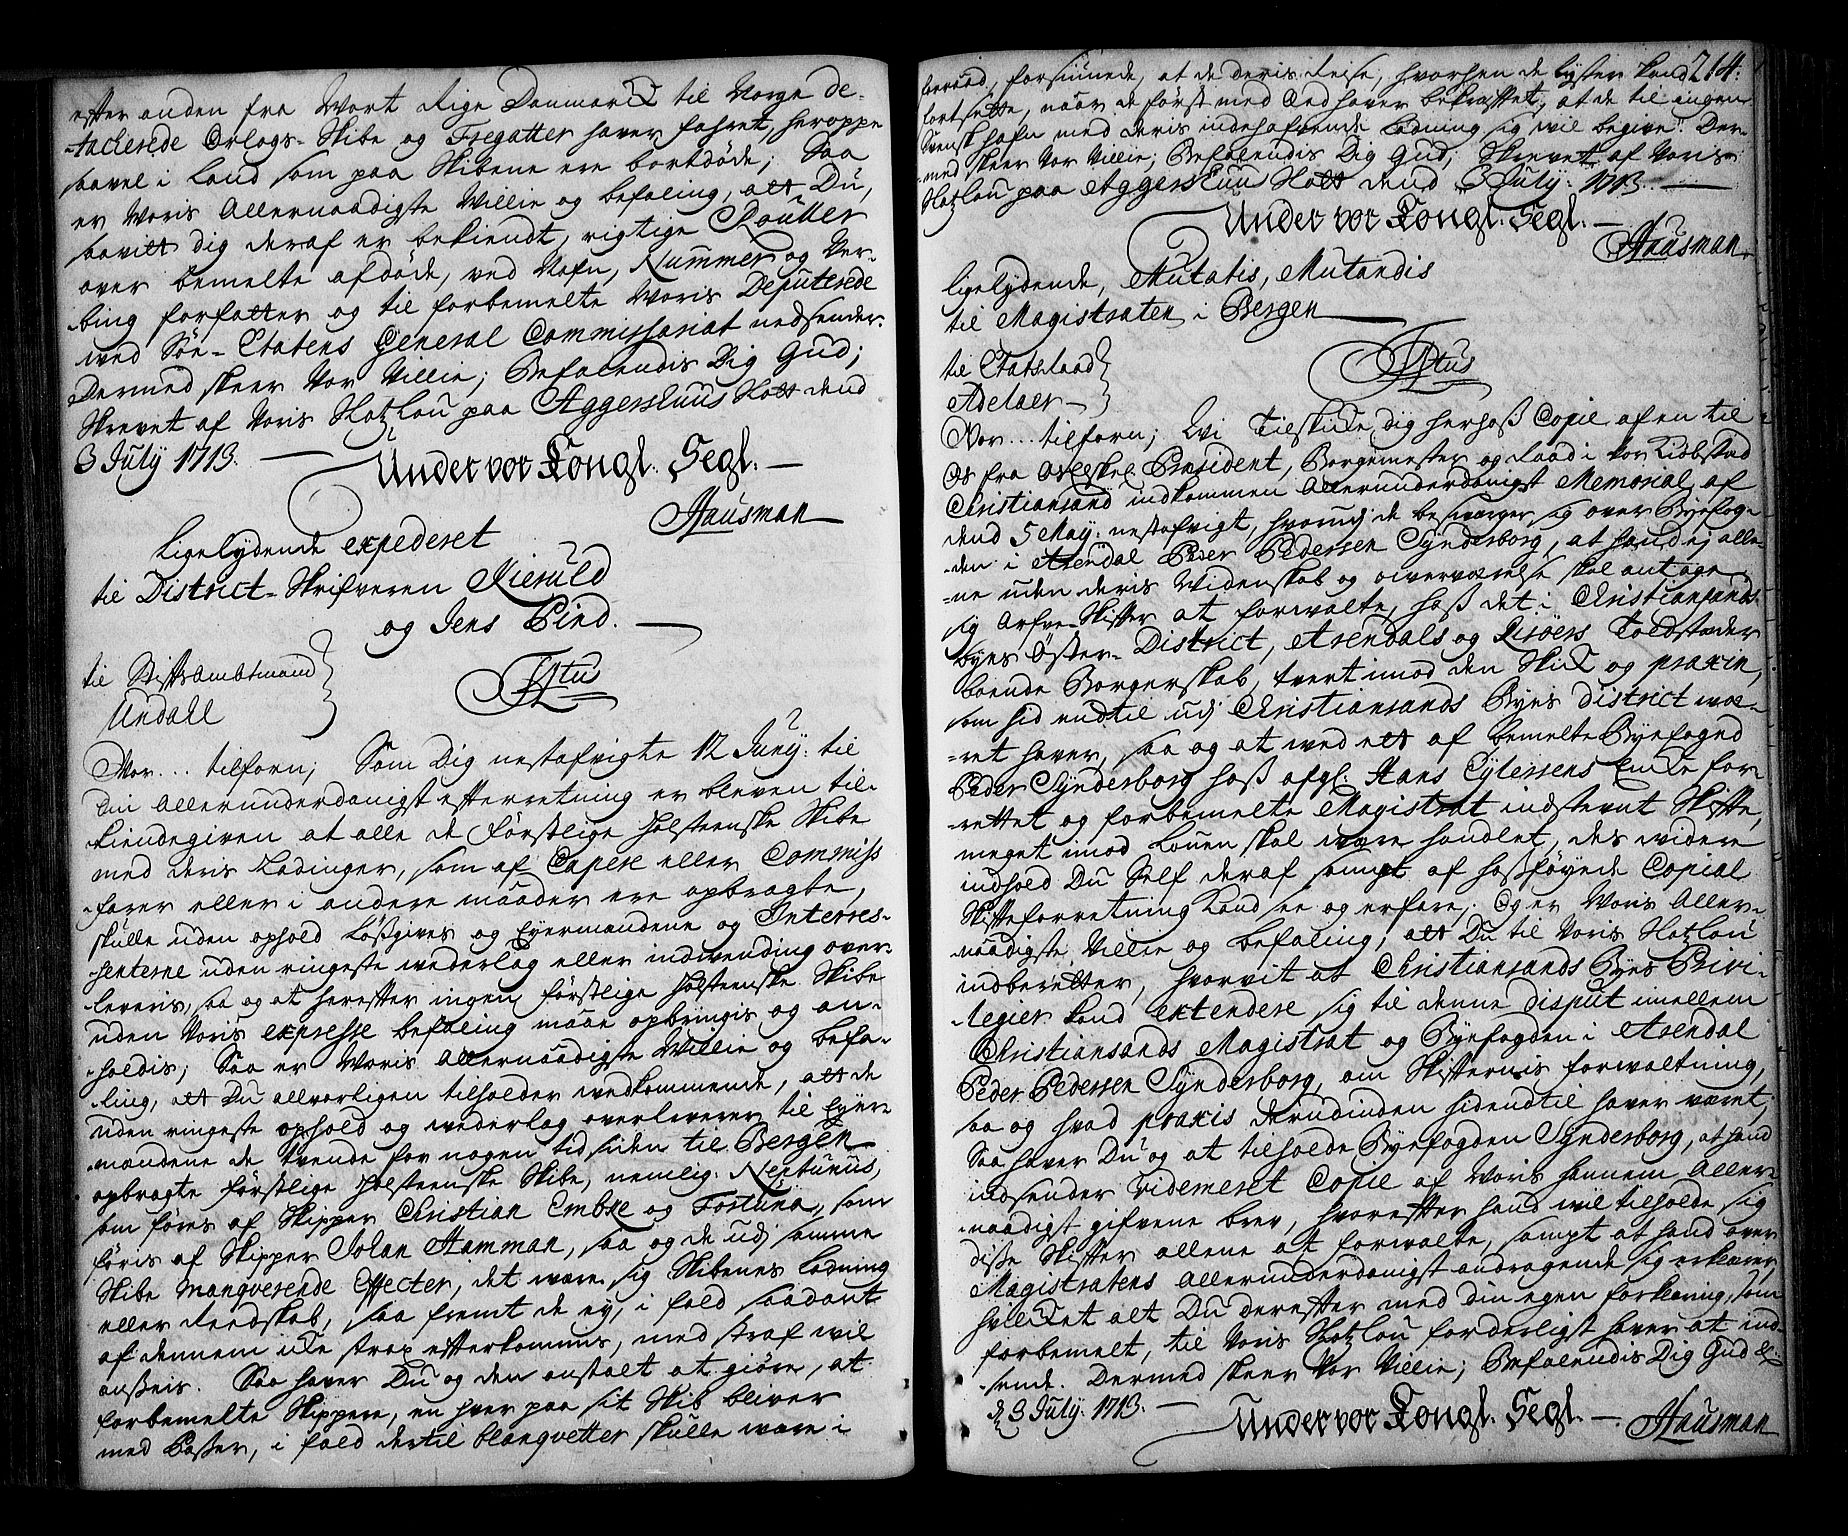 efter anden fra Wort Rige Danmarck til Norge de-
-tacherede Orlogs-Skibe og Fregatter haver fahret, heroppe
saavel i Land som paa Skibene ere bortdøde; Saa
er Voris Allernaadigste Willie og befaling, att Du,
saavitt dig deraf er bekiendt, rigtige Rouller
over bemelte afdøde, ved Nafn, Nummer og Ver-
-bing forfatter og til forbemelte Woris Deputerede
wed Søe-Etatens General Commissariat nedsender.
Dermed skeer Vor Villie; Befalendis Dig Gud;
Skrevet af Voris Slotzlou paa Aggershuus Slott dend
3 July 1713.
Under vor Kongl. Segl.
Hausman
Ligelydende expederet
til District-Skrifveren Kieruld
og Jens Pind.
til Stiftsambtmand
Undall
Vor... tilforn; Som Dig nestafvigte 12 Juny: til
Din Allerunderdanigst efterretning er bleven til-
-kiendegiven at alle de Førstlige Holsteenske Skibe
med deris Ladinger, som af Capere eller Commiss
-farer eller i andere maader ere opbragte,
skulle uden ophold Løsgives og Eyermændene og Interres-
-senterne uden ringeste wederlag eller indwending over-
leveris, saa og at herefter ingen førstlige Holsteenske Skibe
uden Voris expresse befaling maae opbringis og an-
-holdis; Saa er Woris Allernaadigste Willie og befa-
-ling, att Du allvorligen tilholder wedkommende, att de
uden ringeste ophold og wederlag overleverer til Eyer-
-mændene de tvende for nogen tid siden til Bergen
opbragte førstlige Holsteenske Skibe, nemlig: Neptunus,
som føres af Skipper Christian Embke og Fortuna, som
føris af Skipper Johan Hamman, saa og de udj samme
Skibe manqverende Effecter, det være sig Skibenes Ladning
eller Reedskab, saa fremt de ey, i fald saadant
af dennem icke strax efterkommis, med straf wil
ansees. Saa haver Du og den anstalt at giøre, at
forbemelte Skippere, en hver paa sit Skib bliver
med Passer, i fald dertil blanqvetter skulle være i
214.
forraad, forsiunede, at de deris Reise, hvorhen de lyster kand
fortsette, naar de først med Eed haver bekræftet, at de til ingen
Svensk hafn med deris indehafvende Ladning sig wil begive. Der-
-med skeer Vor Villie; Befalendis Dig Gud; Skrevet af Voris
Slotzlou paa Aggershuus Slott dend 3 July: 1713.
Under vor Kongl. Segl.
Hausman.
Ligelydende, Mutatis, Mutandis
til Magistraten i Bergen
til Etatsraad
Adelaer
Vor... tilforn; Wi Tilskicke dig herhoß Copie af en til
Os fra Præsident, Borgemester og Raad i vor Kiøbstad
Christiansand indkommen Allerunderdanigst Memorial af
dend 5 May: nestafvigt, hvorudj de besværger sig over Byefog-
-den i Arendal Peder Pedersen Synderborg, at hand ej alle-
-ne uden deris Widenskab og overværelse skal antage
sig Arfve-Skifter at forwalte, hoß det i Christiansands
byes Øster-District, Arendals og Risøers Toldstæder
boende Borgerskab, tvert imod den Skick og praxin,
som hid indtil udj Christiansands Byes District wæ-
-ret haver, saa og at wed ett af bemelte Byefoged
Peder Synderborg hoß afgl: Hans Eylersens Encke for-
-rettet og forbemelte Magistrat indstevnt Skifte,
meget imod Louen skal være handlet, des widere
indhold Du Self deraf sampt af hoßføyede Copial
Skifteforretning kand see og erfare; Og er Woris Aller-
-naadigste Villie og befaling, att Du til Voris Slotzlou
indberetter, hvorvit at Christiansands Byes Privi-
-legier kand extendere sig til denne disput imellem
Christiansands Magistrat og Byefogden i Arendal
Peder Pedersen Synderborg, om Skifternis forwaltning,
saa og hvad praxis derudinden hidindtil haver været,
Saa haver Du og at tilholde Byefogden Synderborg, at hand
indsender videmeret Copie af Voris hannem Aller-
-naadigst gifvene brev, hvorefter hand wil tilholde sig
disse Skifter allene at forwalte, sampt at hand over
Magistratens Allerunderdanigst andragende sig erklærer,
hvilcket alt Du derefter med din egen forklaring, som
forbemelt, til Voris Slotzlou forderligst haver at ind-
-sende. Dermed skeer Vor Villie; Befalendis Dig Gud
d. 3 July: 1713.
Under vor Kongl. Segl.
Hausman